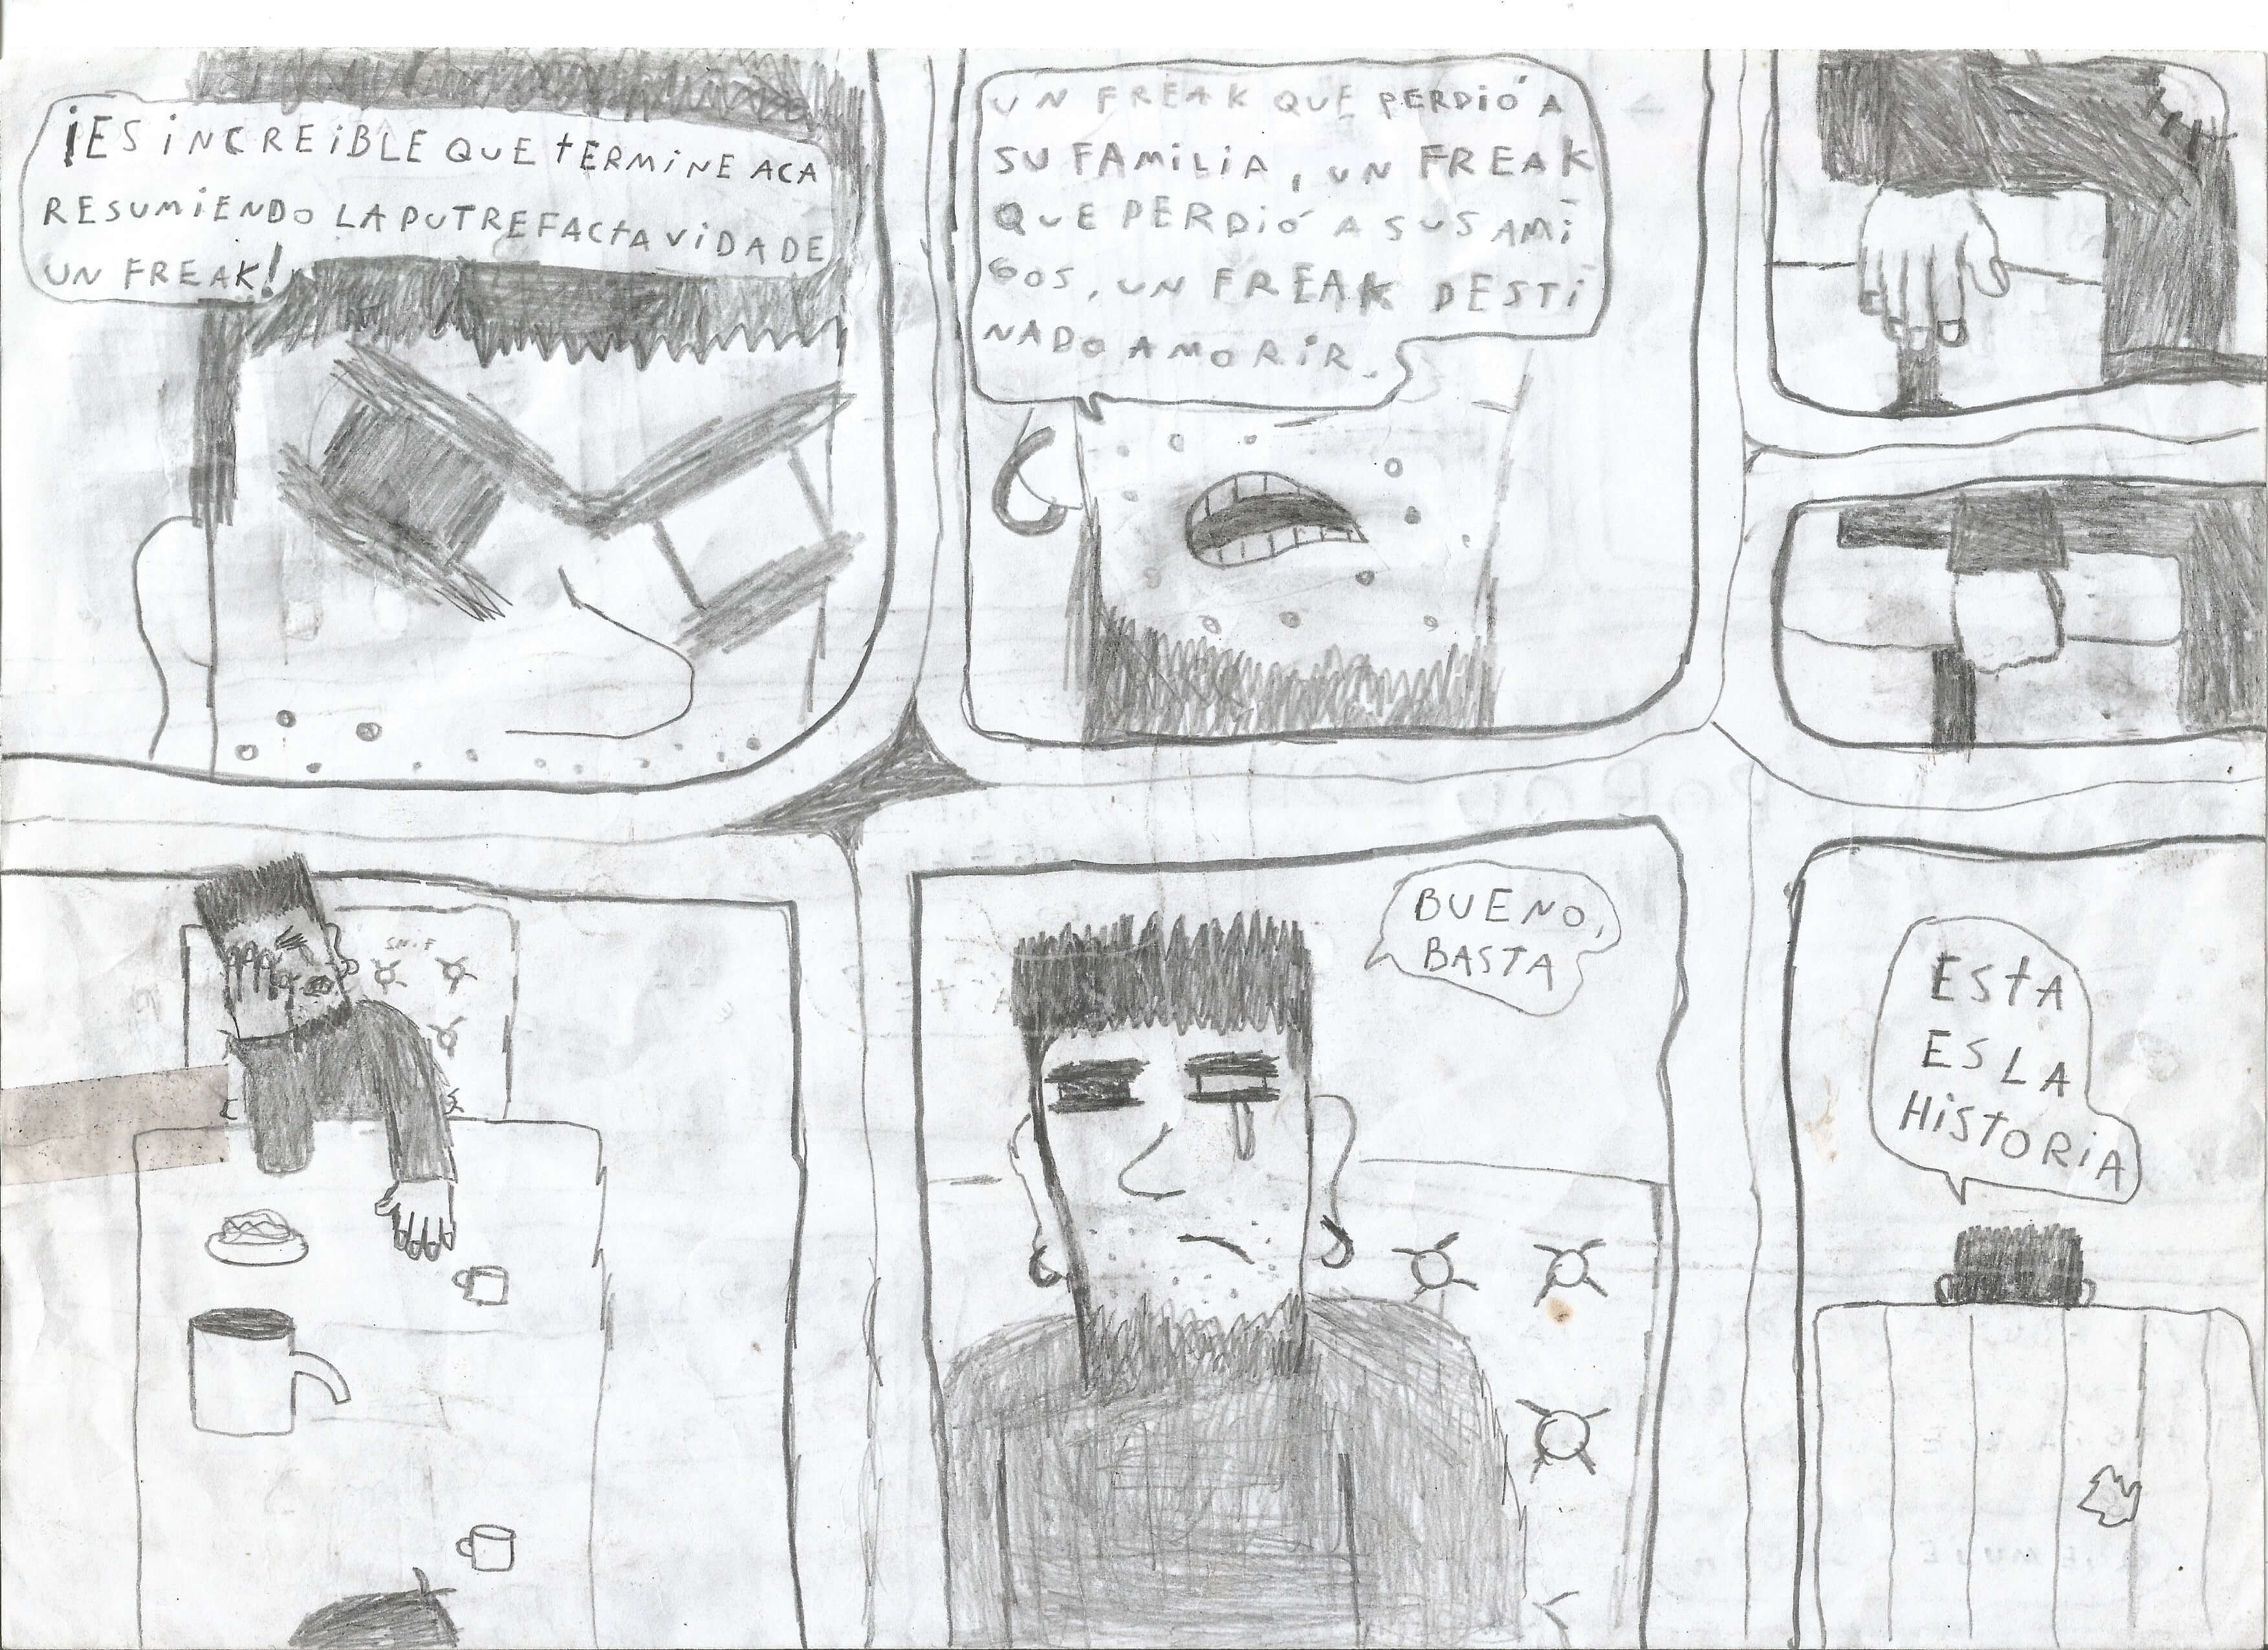 ¡ES INCREIBLE QUE TERMINE ACA
RESUMIENDO LA PUTREFACTA VIDA DE
UN FREAK!
UN FREAK QUE PERDIÓ A
SU FAMILIA, UN FREAK
QUE PERDIÓ A SUS AMI
GOS, UN FREAK DESTI
NADO A MORIR.
SNIF
BUENO,
BASTA
ESTA
ES LA
HISTORIA